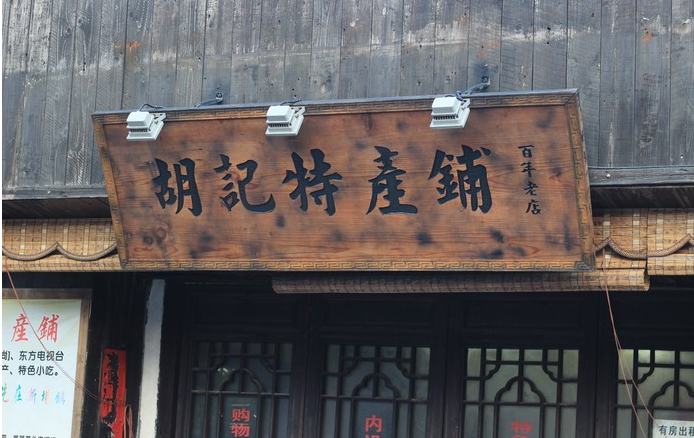 胡記特產鋪
百年老店
產鋪
、东方电视台
产、特色小吃。
购物
内设
特
有房出租